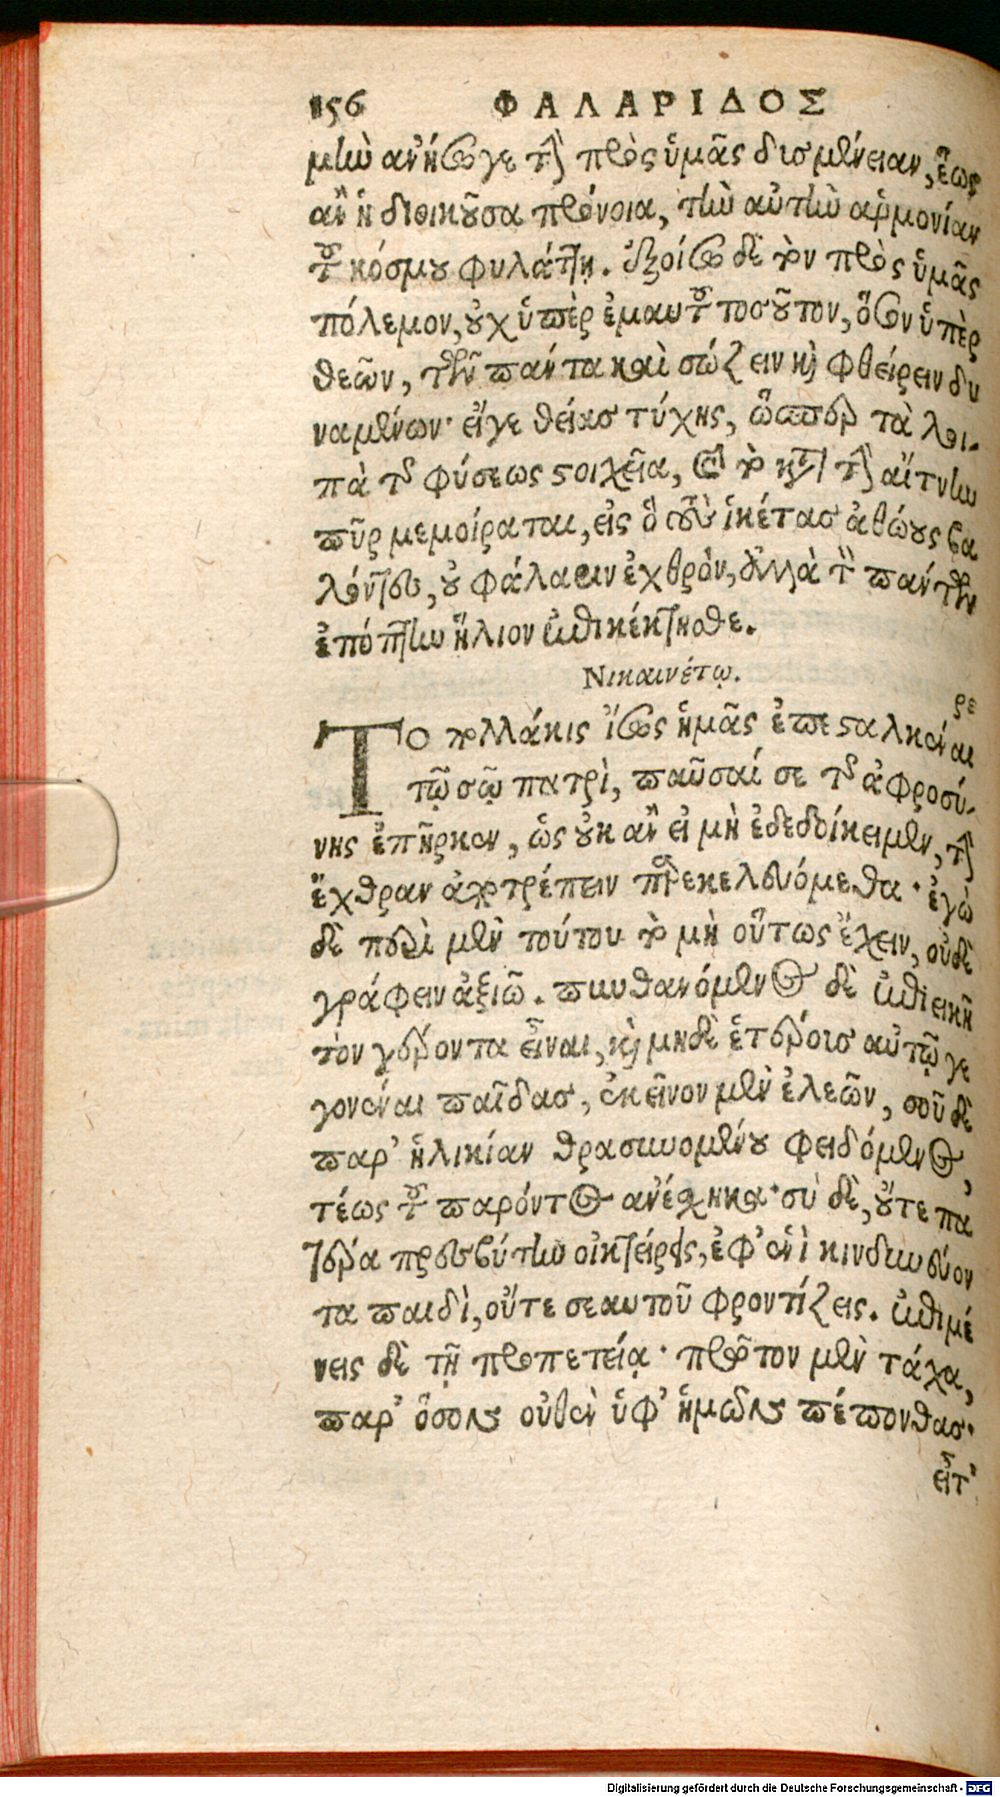 156 ΦΑΛΑΡΙΔΟΣ
μὴν ἀνήσω γε τὴν πρὸς ὑμᾶς δυσμένειαν, ἕως
ἂν ἡ διοικοῦσα πρόνοια, τὴν αὐτὴν ἁρμονίαν
τοῦ κόσμου φυλάττῃ. ἐξοίσω δὲ τὸν πρὸς ὑμᾶς
πόλεμον, οὐχ ὑπὲρ ἐμαυτοῦ τοσοῦτον, ὅσον ὑπὲρ
θεῶν, τῶν πάντα καὶ σώζειν καὶ φθείρειν δυ
ναμένων· εἴγε θείας τύχης, ὥσπερ τὰ λοι-
πὰ τῆς φύσεως στοιχεῖα, καὶ τὸ κατὰ τὴν αἴτνην
πῦρ μεμοίραται, εἰς ὃ σὺ ἱκέτας ἀθώους βα
λόντες, οὐ φάλαριν ἐχθρὸν, ἀλλὰ τὸν πάντων
ἐπόπτην ἥλιον ἐπικέκτησθε.
Νικαινέτῳ.
ρε
Τὸ πολλάκις ἴσως ἡμᾶς ἐπεσταλκέναι
τῷ σῷ πατρὶ, παῦσαί σε τῆς ἀφροσύ-
νης ἐπῆρκεν, ὡς οὐκ ἂν εἰ μὴ ἐδεδοίκειμεν, τὴν
ἔχθραν ἀποτρέπειν παρεκελευόμεθα· ἐγὼ
δὲ περὶ μὲν τούτου τὸ μὴ οὕτως ἔχειν, οὐδὲ
γράφειν ἀξιῶ. πυνθανόμενος δὲ ἐπιεικῆ
τὸν γέροντα εἶναι, καὶ μηδὲ ἑτέρους αὐτῷ γε
γονέναι παῖδας, ἐκεῖνον μὲν ἐλεῶν, σοῦ δὲ
παρ' ἡλικίαν θρασυνομένου φειδόμενος,
τέως τοῦ παρόντος ἀνέσχηκα· σὺ δὲ, οὔτε πα
τέρα πρεσβύτην οἰκτείρεις, ἐφ' ἑνὶ κινδυνεύον
τα παιδὶ, οὔτε σεαυτοῦ φροντίζεις. ἐπιμέ
νεις δὲ τῇ προπετείᾳ· πρῶτον μὲν τάχα,
παρ' ὅσον οὐθὲν ὑφ' ἡμῶν πέπονθας·
εἶτ'
Digitalisierung gefördert durch die Deutsche Forschungsgemeinschaft - DFG